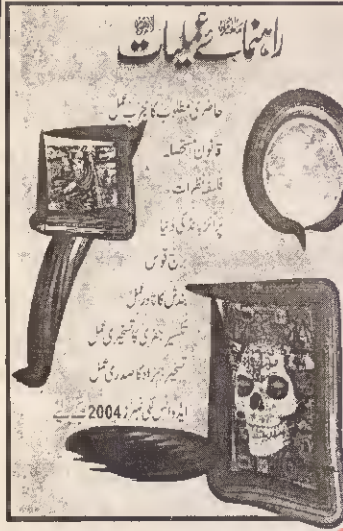 راہنمائے عملیات
حاضری مطلوب کا مجرب عمل
قانون مستحصلہ
فلسفہ نظرات
پرائز بونڈ کی دنیا
برج قوس
بندش کا نادر عمل
تکسیر جفری کا تسخیری عمل
تسخیر ہمزاد کا صدری عمل
ایڈوانس لکی نمبرز 2004